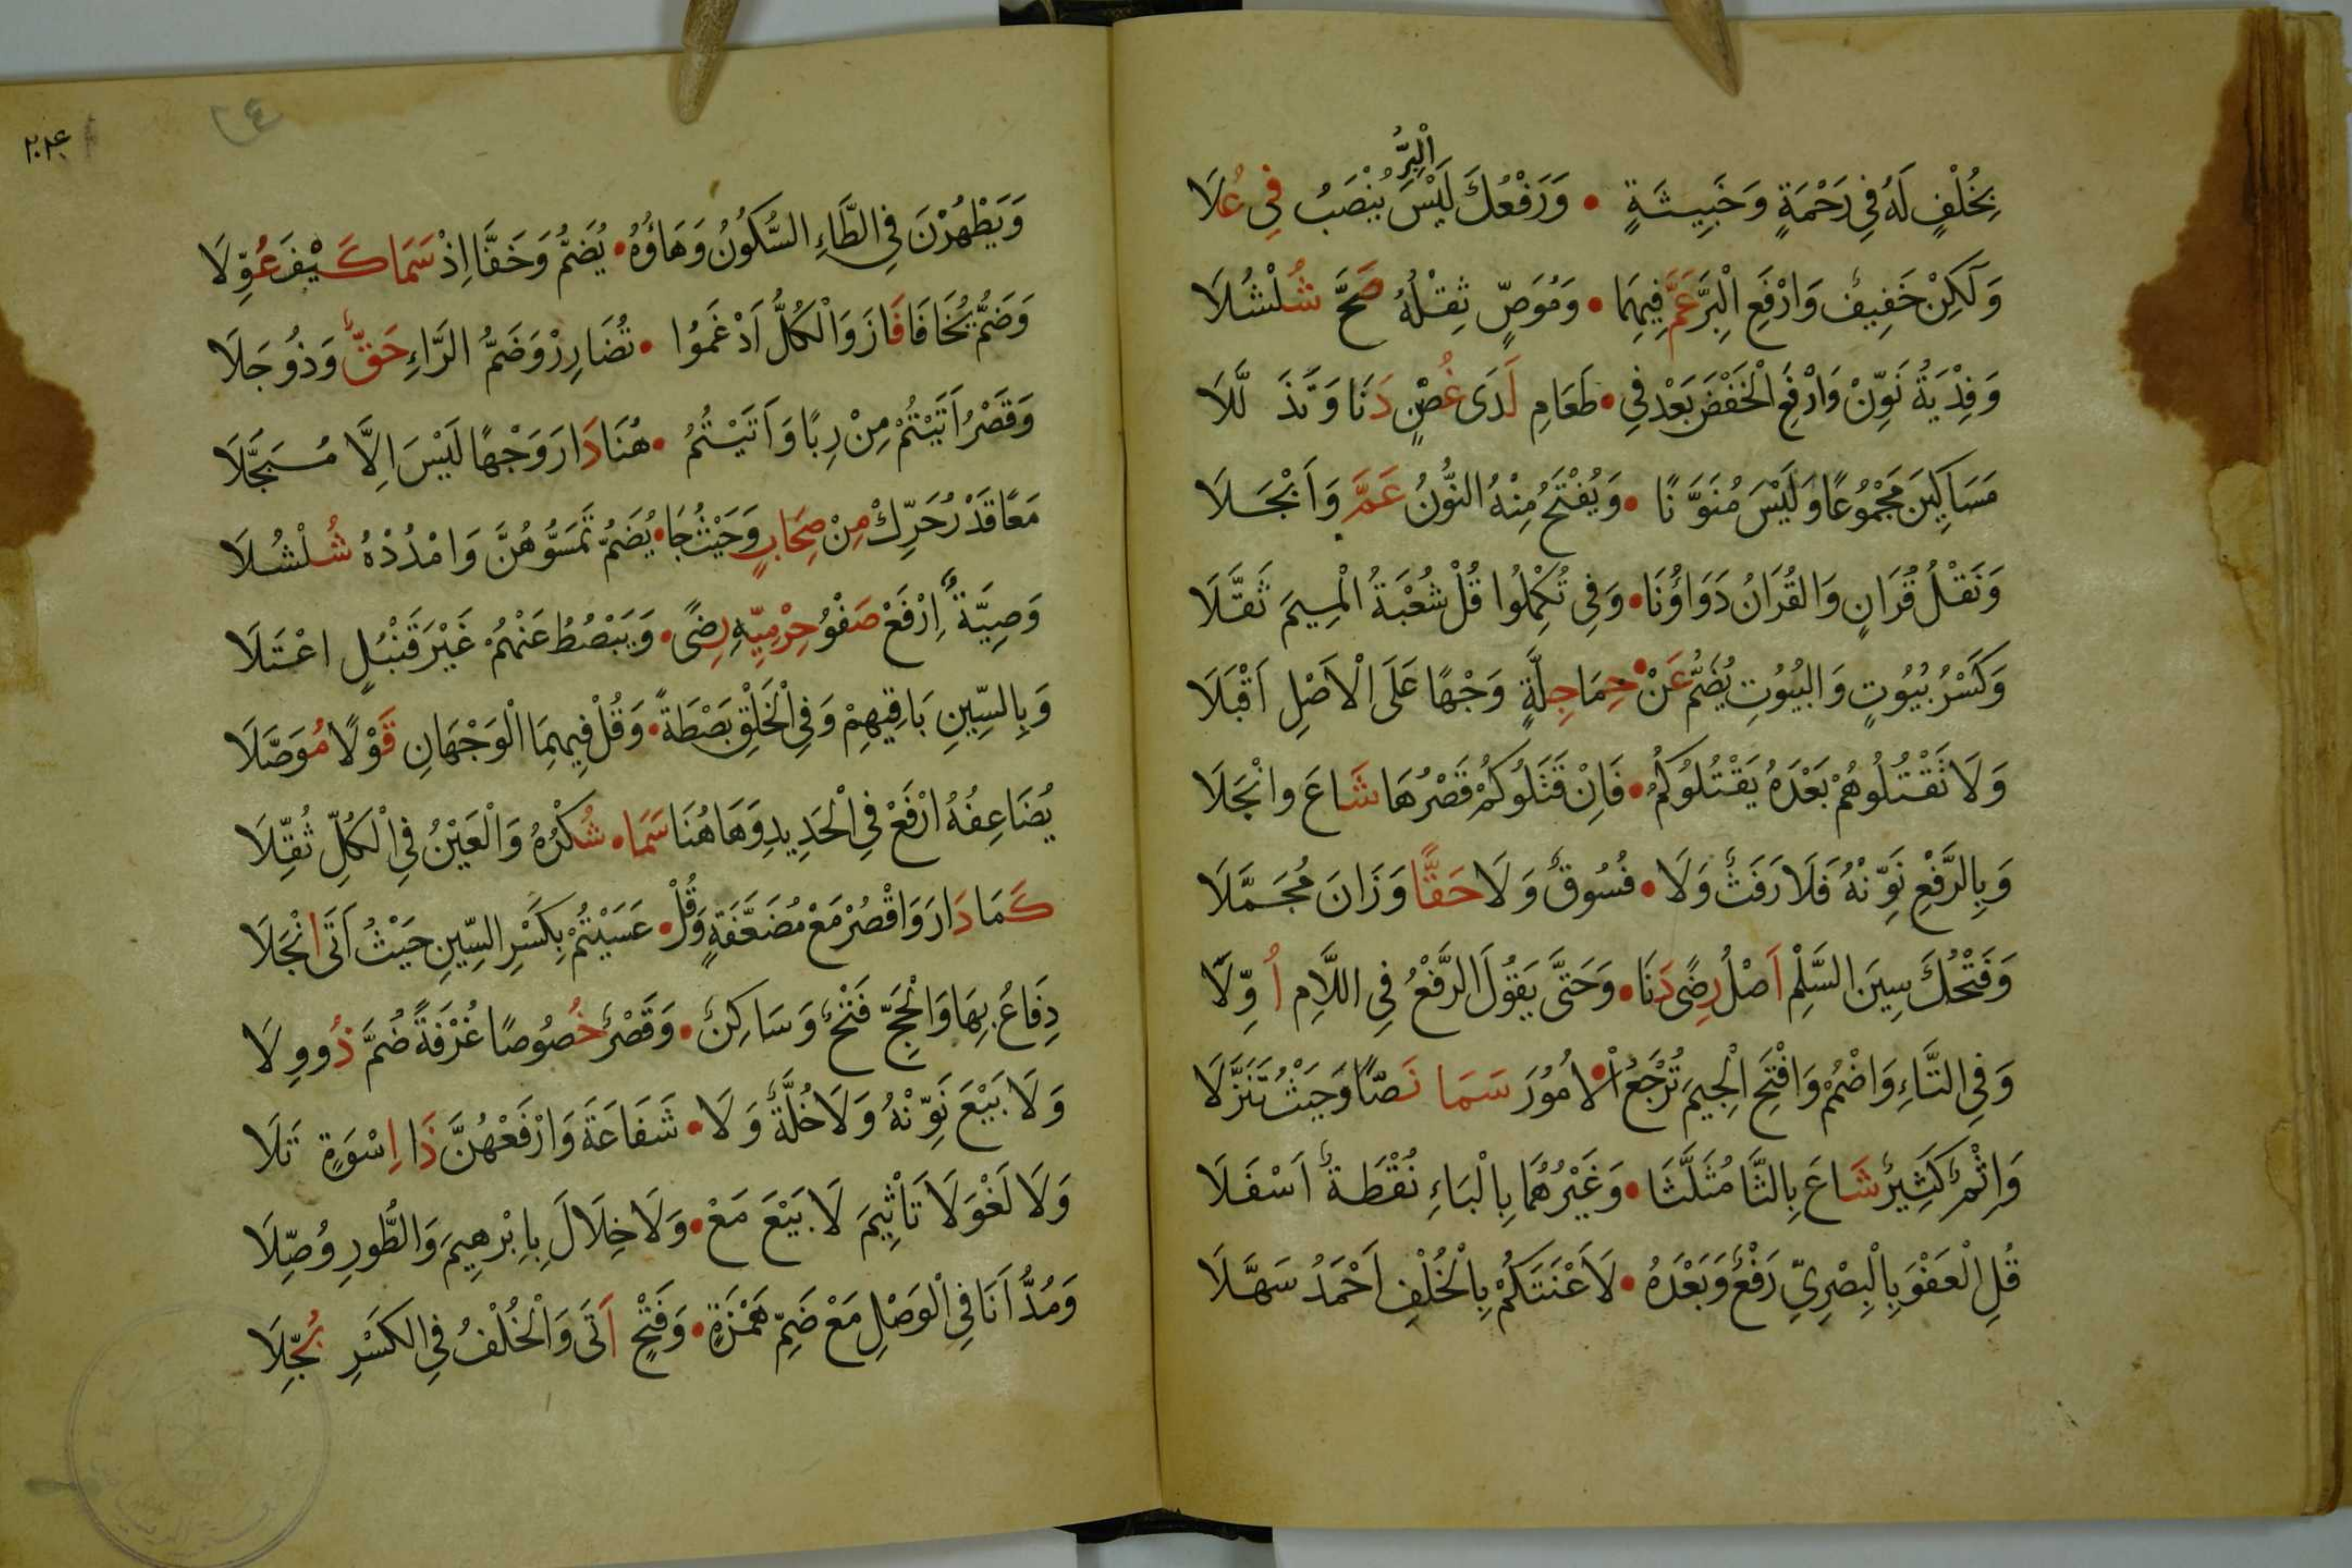 بِخُلْفٍ لَهُ فِي رَحْمَةٍ وَخَبِيثَةٍ • وَرَفْعُكَ لَيْسَ الْبِرُّ يُنْصَبُ فِي عُلَا
وَلَكِنْ خَفِيفٌ وَارْفَعِ الْبِرَّ عَمَّ فِيهِمَا • وَمُوَصٍّ ثِقْلُهُ صَحَّ شُلْشُلَا
وَفِدْيَةُ نَوِّنْ وَارْفَعِ الْخَفْضَ بَعْدُ فِي • طَعَامِ لَدَى غُصْنٍ دَنَا وَتَذَلَّلَا
مَسَاكِينَ مَجْمُوعًا وَلَيْسَ مُنَوَّنًا • وَيُفْتَحُ مِنْهُ النُّونُ عَمَّ وَأَبْجَلَا
وَنَقْلُ قُرَانٍ وَالْقُرَانُ دَوَاؤُنَا • وَفِي تُكْمِلُوا قُلْ شُعْبَةُ الْمِيمَ ثَقَّلَا
وَكَسْرُ بُيُوتٍ وَالْبُيُوتِ يُضَمُّ عَنْ • حِمَا جِلَّةٍ وَجْهًا عَلَى الْأَصْلِ أَقْبَلَا
وَلَا تَقْتُلُوهُمْ بَعْدَهُ يَقْتُلُوكُمُ • فَإِنْ قَتَلُوكُمْ قَصْرُهَا شَاعَ وَانْجَلَا
وَبِالرَّفْعِ نَوِّنْهُ فَلَا رَفَثٌ وَلَا • فُسُوقٌ وَلَا حَقًّا وَزَانَ مُجَمَّلَا
وَفَتْحُكَ سِينَ السَّلْمِ أَصْلُ رِضًى دَنَا • وَحَتَّى يَقُولَ الرَّفْعُ فِي اللَّامِ أُوِّلَا
وَفِي التَّاءِ وَاضْمُمْ وَافْتَحِ الْجِيمَ تُرْجَعُ الْ • أُمُورُ سَمَا نَصًّا وَحَيْثُ تَنَزَّلَا
وَإِثْمٌ كَثِيرٌ شَاعَ بِالثَّا مُثَلَّثَا • وَغَيْرُهُمَا بِالْبَاءِ نُقْطَةٌ أَسْفَلَا
قُلِ الْعَفْوَ بِالْبِصْرِيِّ رَفْعٌ وَبَعْدَهُ • لَأَعْنَتَكُمْ بِالْخُلْفِ أَحْمَدُ سَهَّلَا
٢٤
وَيَطْهُرْنَ فِي الطَّاءِ السُّكُونُ وَهَاؤُهُ • يُضَمُّ وَخَفَّا إِذْ سَمَا كَيْفَ عُوِّلَا
وَضَمُّ يُخَافَا فَازَ وَالْكُلُّ أَدْغَمُوا • تُضَارِرْ وَضَمُّ الرَّاءِ حَقٌّ وَذُو جَلَا
وَقَصْرُ أَتَيْتُمْ مِنْ رِبًا وَأَتَيْتُمُ • هُنَا دَارَ وَجْهًا لَيْسَ إِلَّا مُبَجَّلَا
مَعًا قَدْرُ حَرِّكْ مِنْ صِحَابٍ وَحَيْثُ جَا • يُضَمُّ تَمَسُّوهُنَّ وَامْدُدْهُ شُلْشُلَا
وَصِيَّةٌ ارْفَعْ صَفْوُ حِرْمِيِّهِ رِضًى • وَيَبْصُطُ عَنْهُمْ غَيْرَ قُنْبُلٍ اعْتَلَا
وَبِالسِّينِ بَاقِيهِمْ وَفِي الْخَلْقِ بَصْطَةً • وَقُلْ فِيهِمَا الْوَجْهَانِ قَوْلًا مُوَصَّلَا
يُضَاعِفُهُ ارْفَعْ فِي الْحَدِيدِ وَهَاهُنَا سَمَا • شُكْرُهُ وَالْعَيْنُ فِي الْكُلِّ ثُقِّلَا
كَمَا دَارَ وَاقْصُرْ مَعْ مُضَعَّفَةٍ وَقُلْ • عَسَيْتُمْ بِكَسْرِ السِّينِ حَيْثُ أَتَى انْجَلَا
دِفَاعُ بِهَا وَالْحَجِّ فَتْحٌ وَسَاكِنٌ • وَقَصْرٌ خُصُوصًا غُرْفَةً ضُمَّ ذُو وِلَا
وَلَا بَيْعَ نَوِّنْهُ وَلَا خُلَّةٌ وَلَا • شَفَاعَةَ وَارْفَعْهُنَّ ذَا إِسْوَةٍ تَلَا
وَلَا لَغْوَ لَا تَأْثِيمَ لَا بَيْعَ مَعْ • وَلَا خِلَالَ بِإِبْرٰهِيمَ وَالطُّورِ وُصِّلَا
وَمَدُّ أَنَا فِي الْوَصْلِ مَعْ ضَمِّ هَمْزَةٍ • وَفَتْحٍ أَتَى وَالْخُلْفُ فِي الْكَسْرِ بُجِّلَا